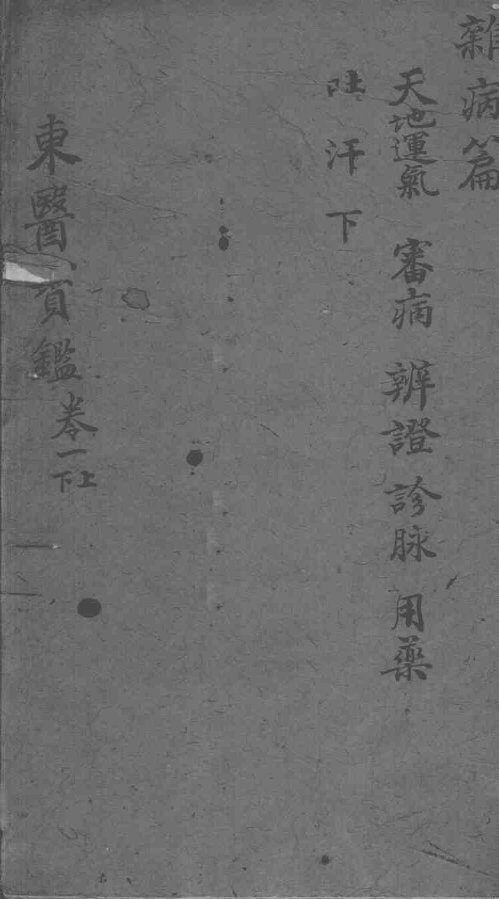 雜病篇
天地運氣 審病 辨證 診脉 用藥
吐 汗 下
東醫寳鑑 卷一 上下